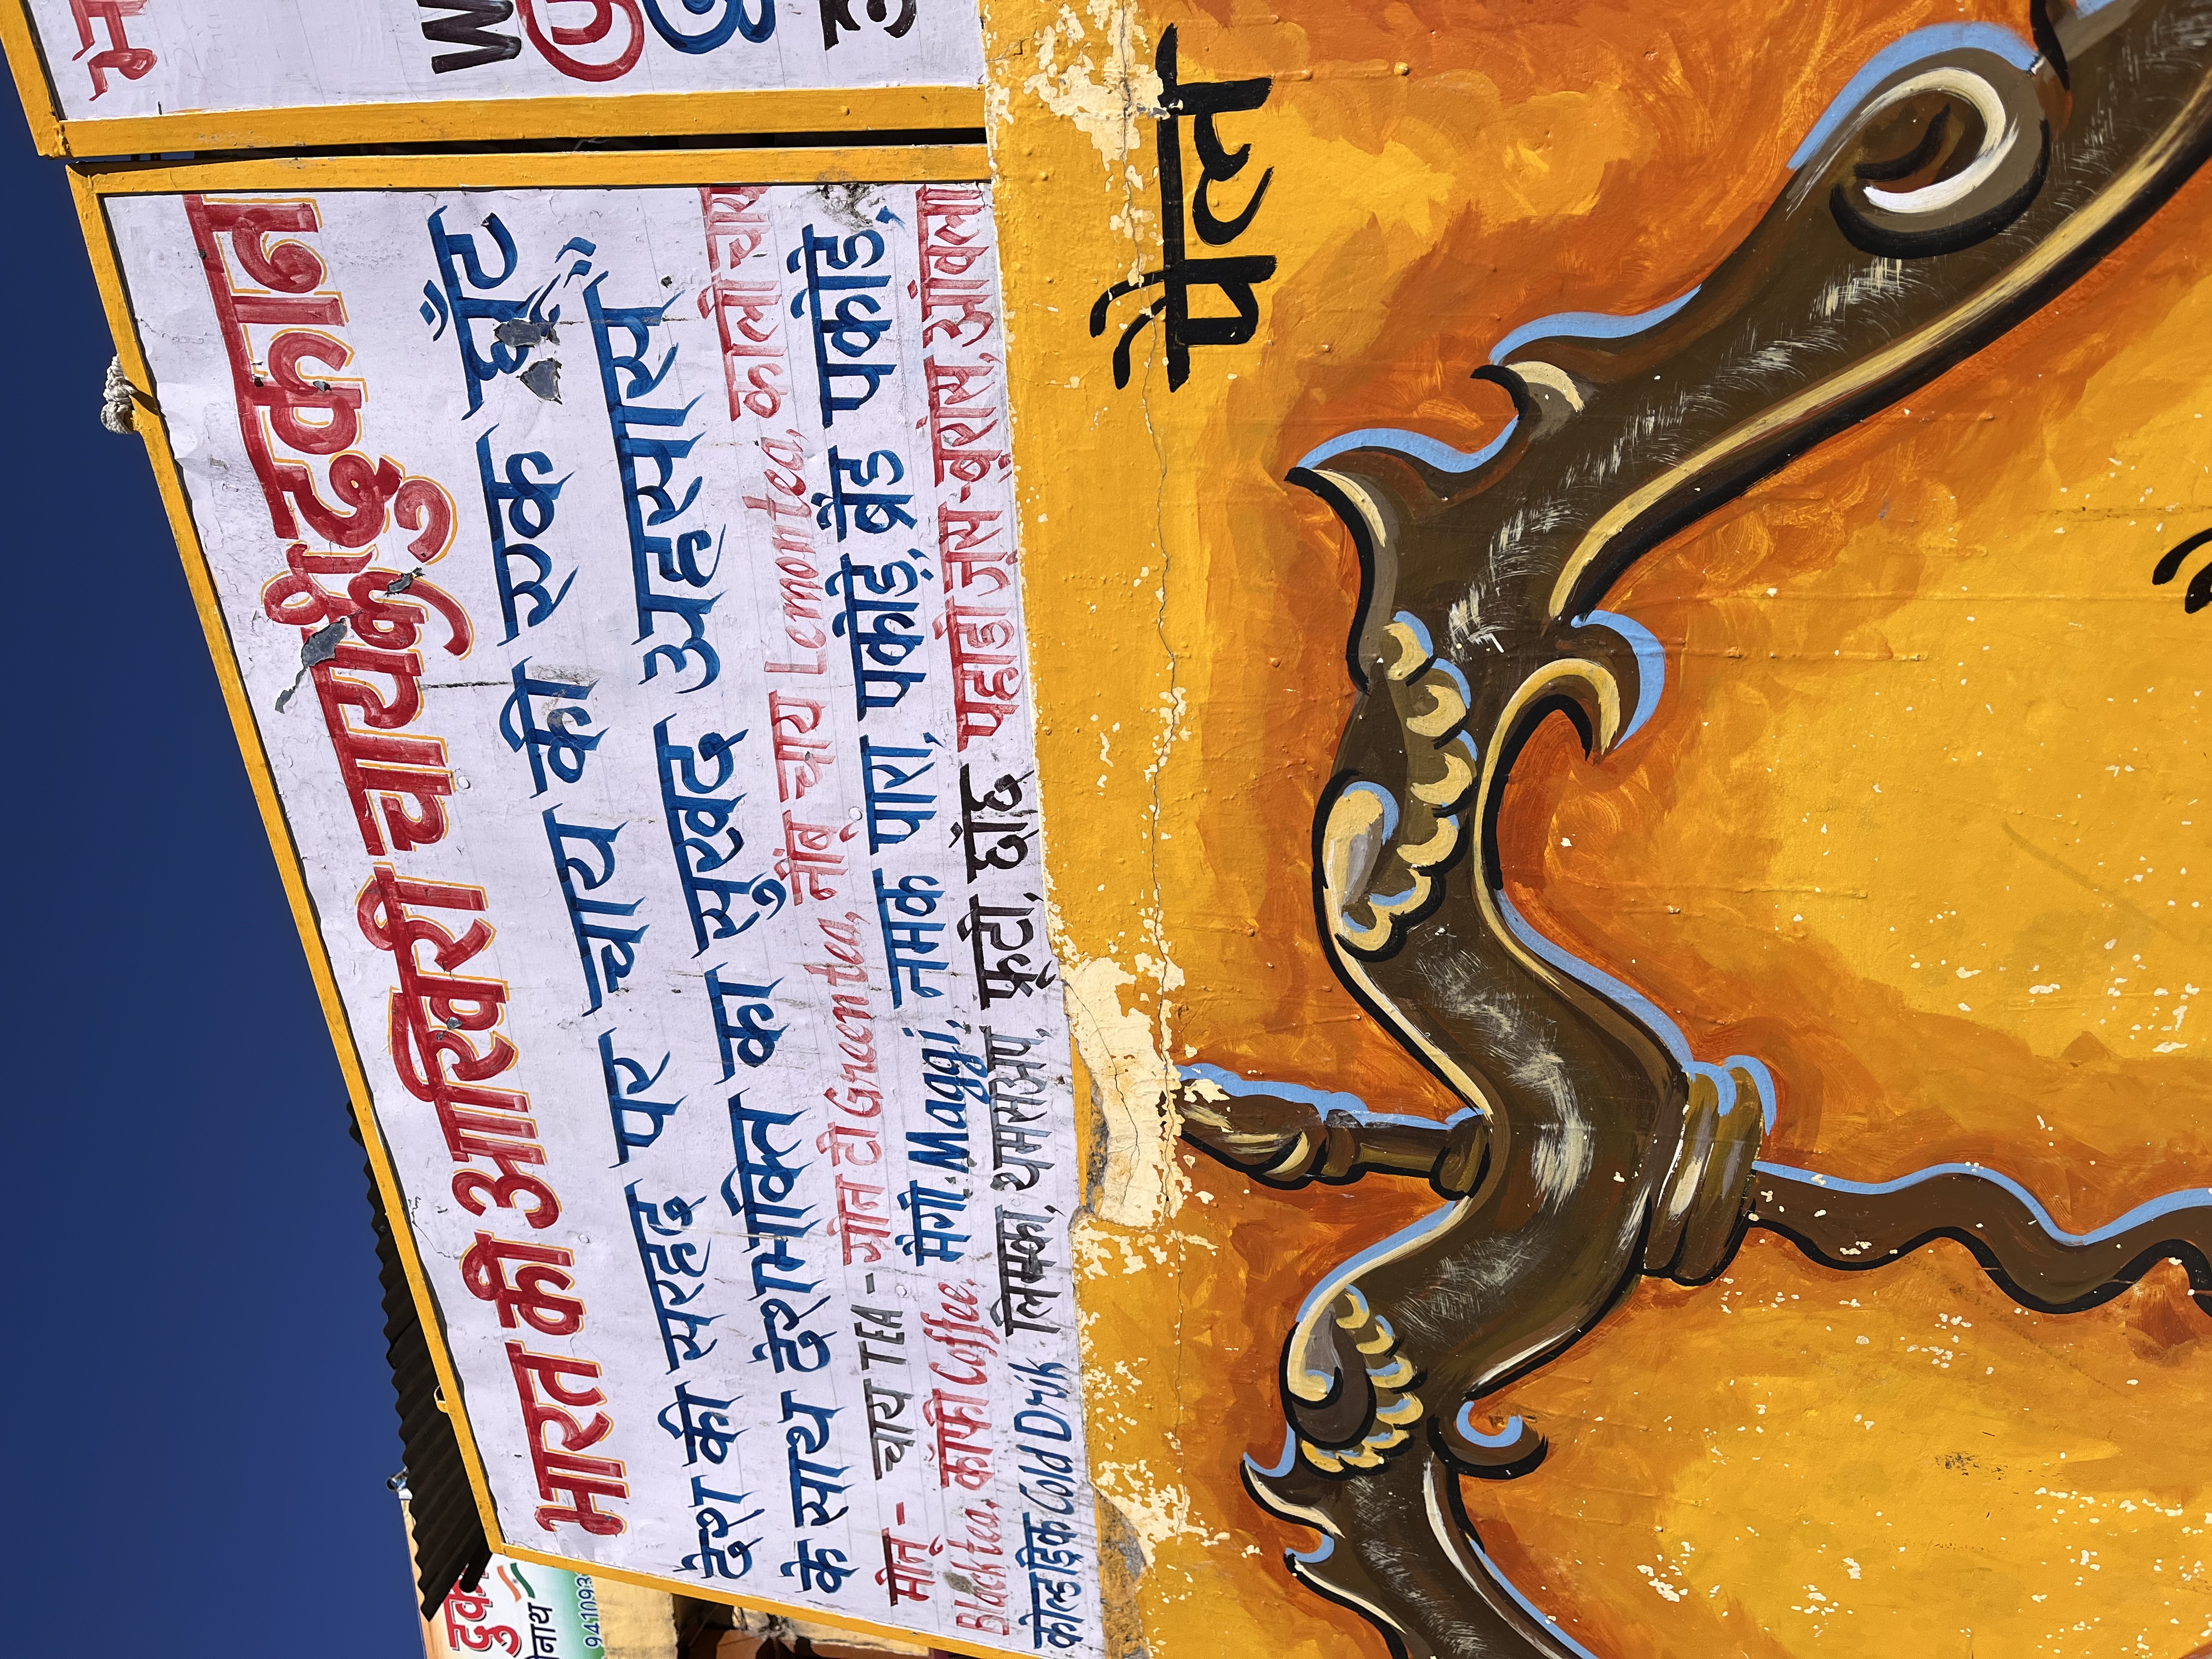 भारत की आखिरी चाय की दुकान
देश की सरहद पर चाय की एक घूँट
के साथ देशभक्ति का सुखद अहसास”
मीनू - चाय TEA - ग्रीन टी Green tea, नींबू चाय Lemon tea, काली चाय
Black tea, कॉफी Coffee, मैगी Maggi, नमक पारा, पकौड़े, ब्रैड पकोडे,
कोल्डड्रिंक Cold Drik लिमका, थमसअप, फ्रूटी, छाँछ पहाडी जूस-बुरांस, आंवला
पैल